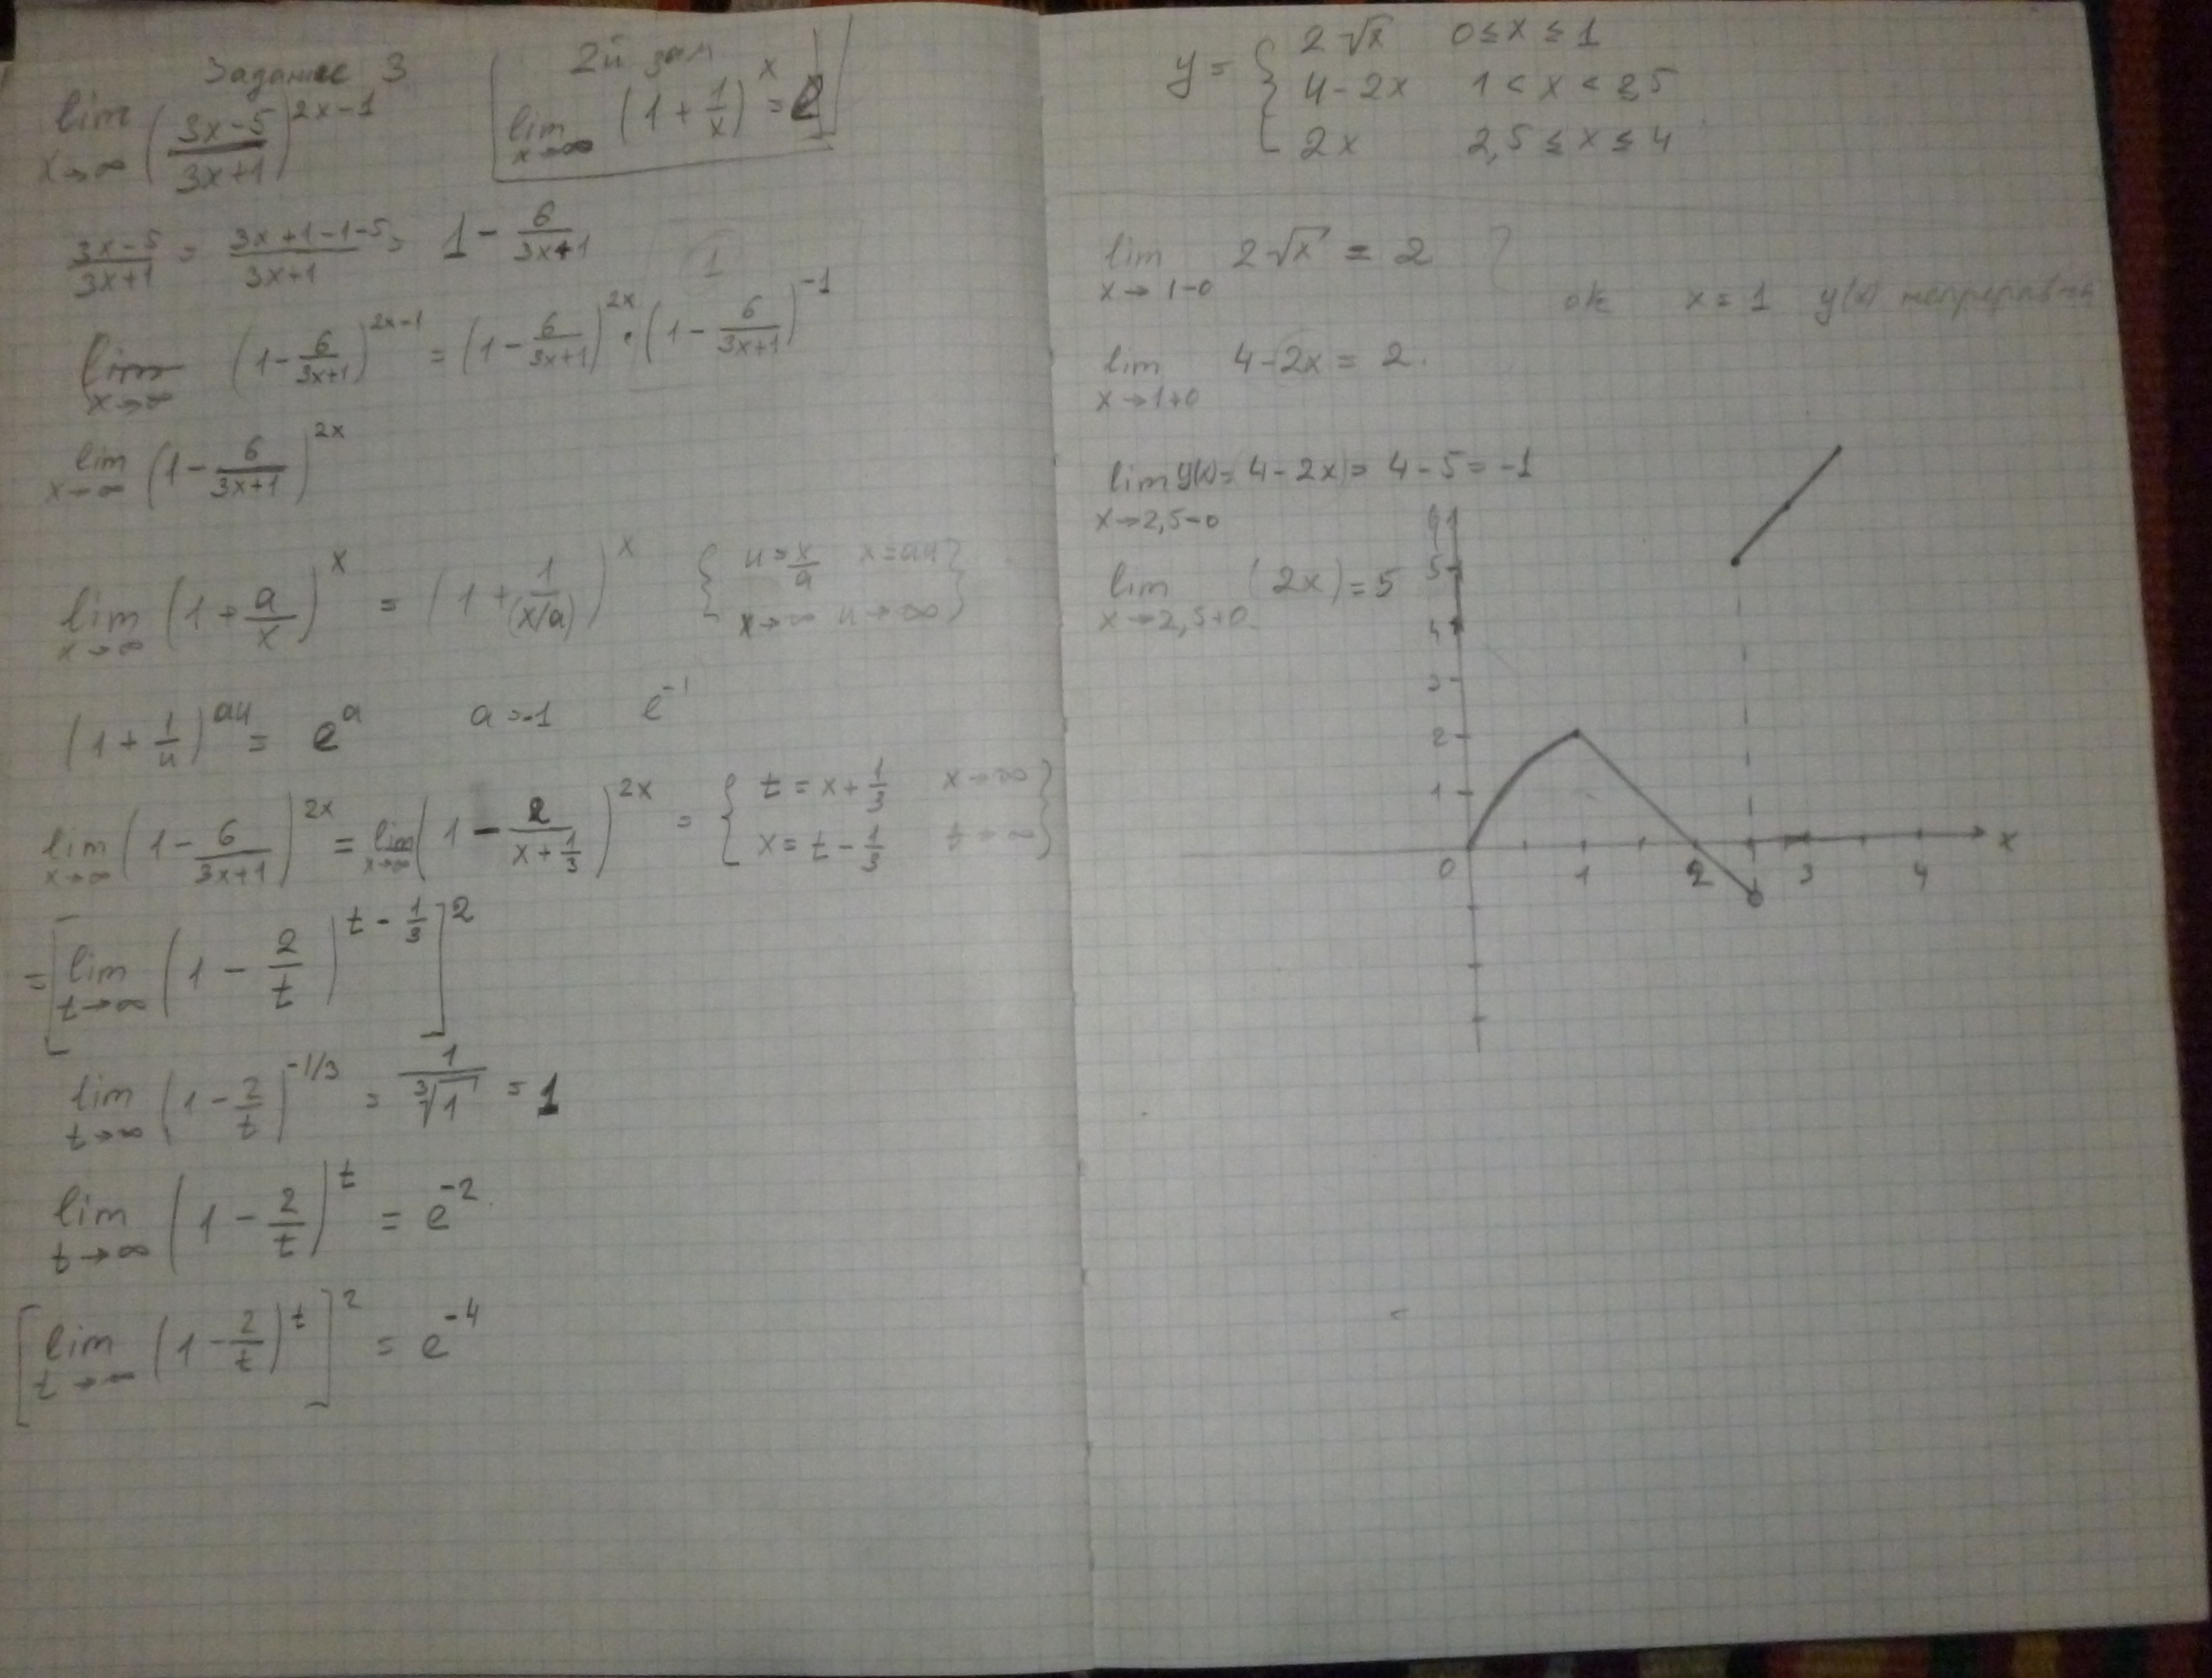 Задание 3
2й зам
lim x→∞ ((3x-5)/(3x+1))^(2x-1)
lim x→∞ (1 + 1/x)^x = e
(3x-5)/(3x+1) = (3x+1-1-5)/(3x+1) = 1 - 6/(3x+1)
1
lim x→∞ (1 - 6/(3x+1))^(2x-1) = (1 - 6/(3x+1))^(2x) · (1 - 6/(3x+1))^(-1)
lim x→∞ (1 - 6/(3x+1))^(2x)
lim x→∞ (1 + a/x)^x = (1 + 1/(x/a))^x { u = x/a x = au
x→∞ u→∞ }
(1 + 1/u)^(au) = e^a a = -1 e^(-1)
lim x→∞ (1 - 6/(3x+1))^(2x) = lim x→∞ (1 - 2/(x + 1/3))^(2x) = { t = x + 1/3 x→∞
x = t - 1/3 t→∞ }
= [lim t→∞ (1 - 2/t)^(t - 1/3)]^2
lim t→∞ (1 - 2/t)^(-1/3) = 1/∛1 = 1
lim t→∞ (1 - 2/t)^t = e^(-2)
[lim t→∞ (1 - 2/t)^t]^2 = e^(-4)
y = { 2√x 0 ≤ x ≤ 1
4-2x 1 < x < 2,5
2x 2,5 ≤ x ≤ 4
lim x→1-0 2√x = 2 }
ok x = 1 y(x) непрерывна
lim x→1+0 4-2x = 2.
lim x→2,5-0 y(x) = (4-2x) = 4-5 = -1
lim x→2,5+0 (2x) = 5
y
5
4
3
2
1
0 1 2 3 4 x